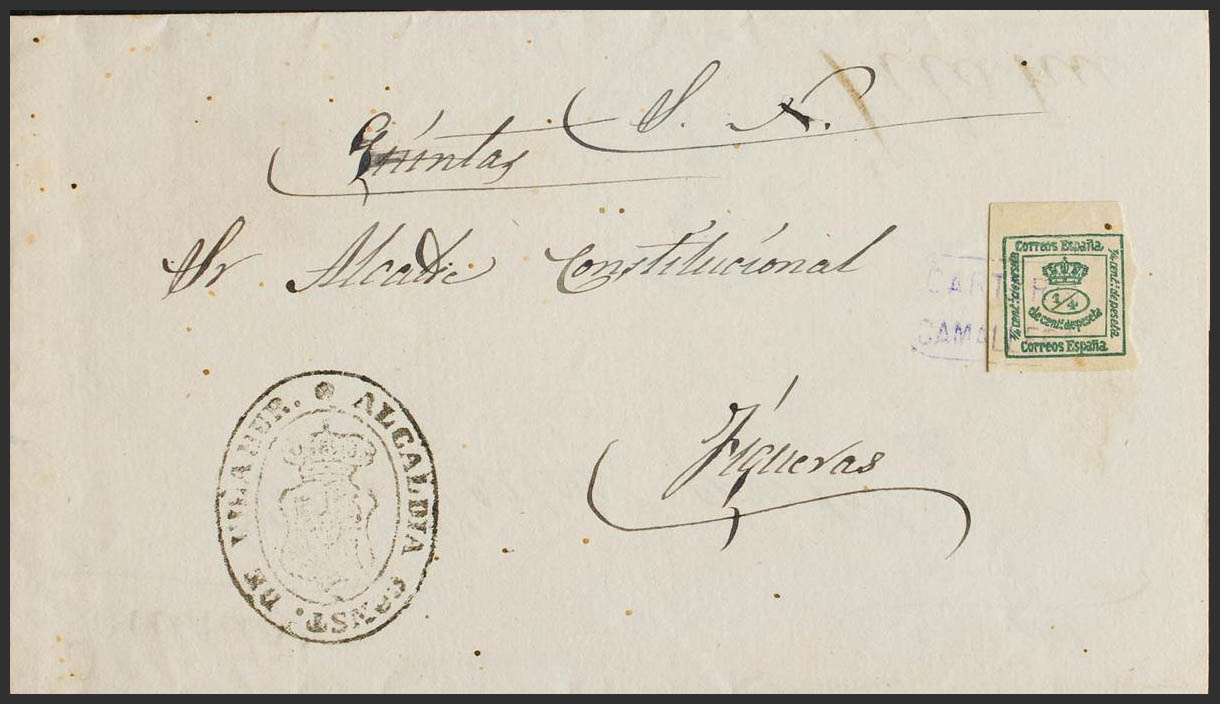 S. N.
Quintas
Sr Alcalde Constitucional
Figueras
Correos España
¼ cent. de peseta
1/4
de cent. de peseta
Correos España
CART
CAMAL
ALCALDIA CONST. DE VILADER.